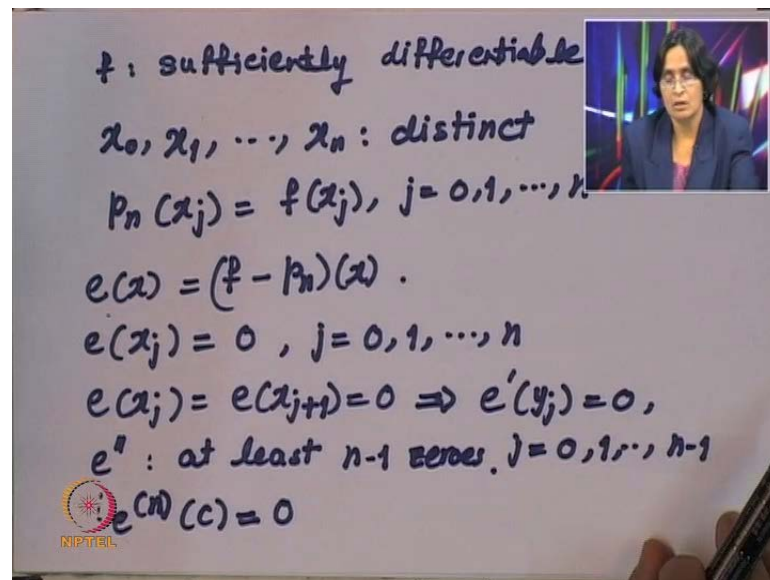 f : sufficiently differentiable
x₀, x₁, ..., xₙ : distinct
pₙ(xⱼ) = f(xⱼ), j = 0, 1, ..., n
e(x) = (f - pₙ)(x).
e(xⱼ) = 0 , j = 0, 1, ..., n
e(xⱼ) = e(xⱼ₊₁) = 0 ⇒ e'(yⱼ) = 0,
e'' : at least n-1 zeroes. j = 0, 1, .., n-1
e⁽ⁿ⁾(c) = 0
NPTEL